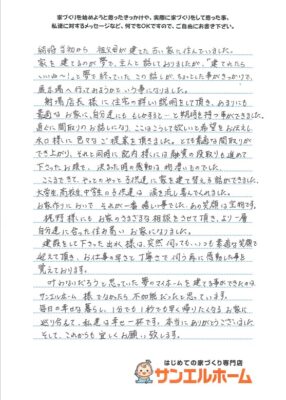 家づくりを始めようと思ったきっかけや、実際に家づくりをして思った事、
私達に対するメッセージなど、何でもOKですので、ご自由にお書き下さい。
結婚当初から 祖父母が建てた古い家に住んでいました。
家を建てるのが夢で、主人と話しておりましたが、"建てれたら
いいね〜"と夢を終えていた この話しが、ちょっとした事がきっかけで、
展示場へ行ってみようかという事になりました。
射場店長様に住宅の詳しい説明をして頂き、あまりにも
素適なお家に、自分達にももしかすると…と期待を持つ事ができました。
直ぐに間取りのお話しになり、ここはこうして欲しいと希望をお伝えし
水口様に色々なご提案を頂きました。とても素適な間取りが
でき上がり、それと同時に 様には融資の段取りも進めて
下さったお陰で、決まった時の感動は 物凄いものでした。
ここまできて、やっとやっと子供達に家を建て替える話ができました。
大学生高校生中学生の子供達は 涙を流し喜んでくれました。
お家作りにおいて それが一番 嬉しい事でした。あの笑顔は宝物です。
梶野様にも お家のさまざまな相談をさせて頂き、より一層
自分達に合った住み易いお家になりました。
建設をして下さった出水様は、突然伺っても、いつも素適な笑顔で
迎えて頂き、お仕事の早さと丁寧さで伺う毎に感動した事を
覚えております。
叶わないだろうと思っていた夢のマイホームを建てる事ができたのは
サンエルホーム 様でなかったら 不可能だったと思っています。
毎日の幸せな暮らし、1分でも1秒でも早く帰りたくなるお家に
巡り会えて、私達は幸せ一杯です。本当にありがとうございました。
そして、これからも宜しくお願い致します。
はじめての家づくり専門店
サンエルホーム